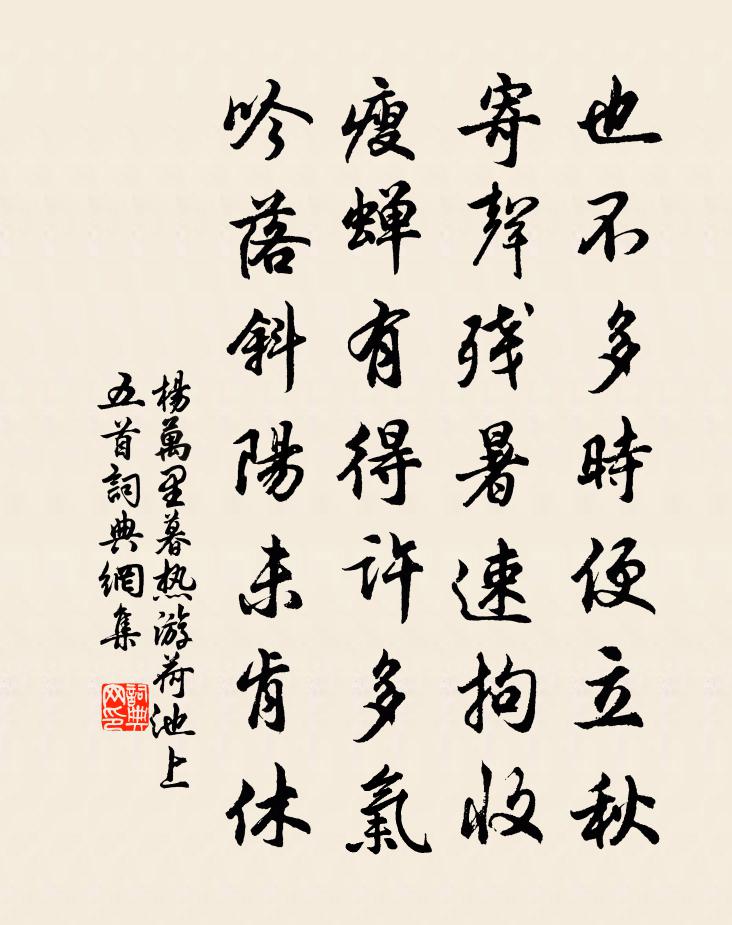 也不多時便立秋
寄聲残暑速拘收
瘦蝉有得許多氣
吟落斜陽未肯休
楊萬里暮热游荷池上
五首詞典網集
詞典网印